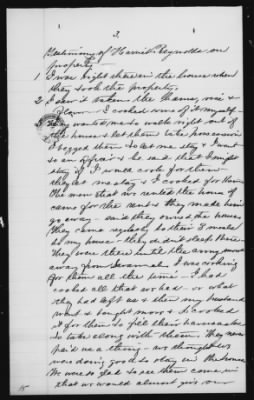 2
Testimony of Harriet Reynolds on
property
1 I was right there in the house when
they took the property.
2 I saw it taken the Hams, rice &
Flour - I cooked some of it myself -
3 They wanted me to walk right out of
the house & let them take possession
I begged them to let me stay & I went
to an officer & he said that I might
stay if I would cook for them -
they let me stay & I cooked for them
The man that we rented the house of
came for the rent & they made him
go away - said they owned the houses
They came regularly to their 3 meals
at my house - they didn't sleep there -
They were there until the army moved
away from Savannah. I was cooking
for them all the time - I had
cooked all that we had - or what
they had left us & then my husband
went & bought more & I cooked
it for them to fill their haversacks
to take along with them. They never
paid us a thing - we thought we
was doing good to stay in the house
We were so glad to see them come in
that we would almost give our